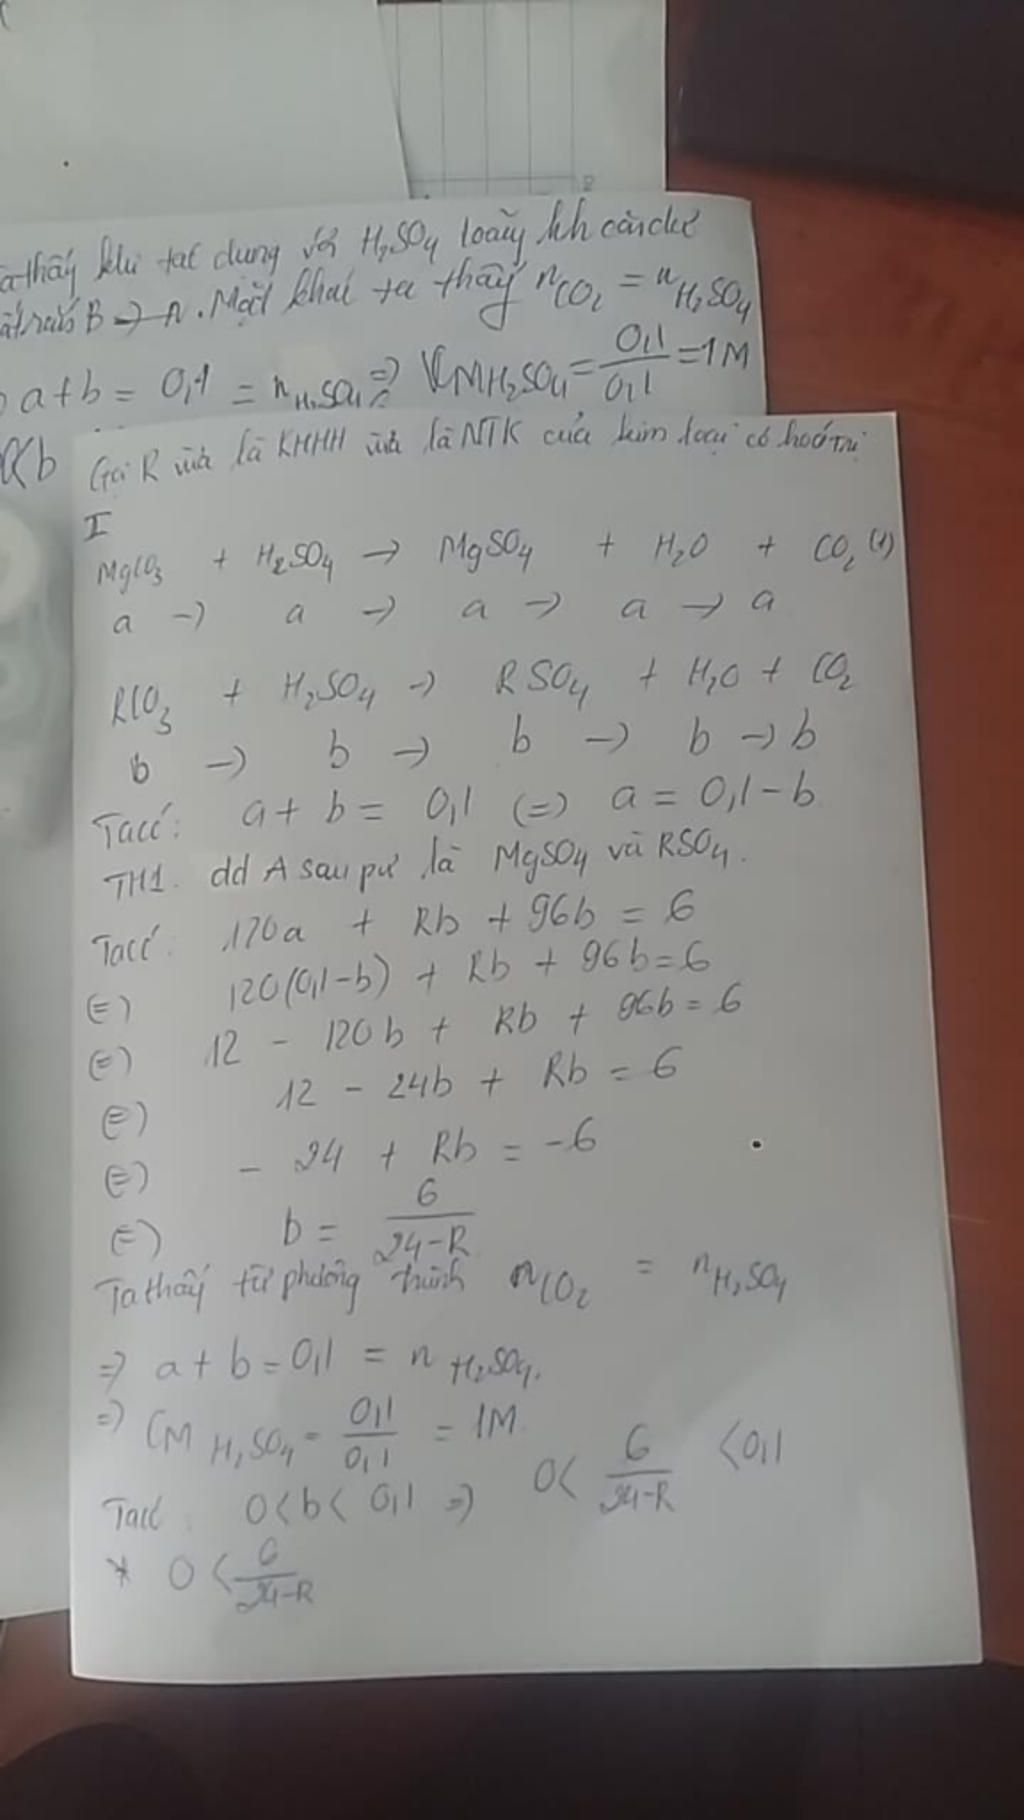 thấy khi tác dụng với H₂SO₄ loãng
B → A. Mặt khác ta thấy nCO₂ = nH₂SO₄
a + b = 0,1 = nH₂SO₄ => CMH₂SO₄ = 0,1/0,1 = 1M
Gọi R vừa là KHHH vừa là NTK của kim loại có hoá trị
II
MgCO₃ + H₂SO₄ → MgSO₄ + H₂O + CO₂ (1)
a → a → a → a → a
RCO₃ + H₂SO₄ → RSO₄ + H₂O + CO₂
b → b → b → b → b
Ta có: a + b = 0,1 (=) a = 0,1 - b
TH1. dd A sau pư là MgSO₄ và RSO₄.
Ta có: 120a + Rb + 96b = 6
(=) 120(0,1-b) + Rb + 96b = 6
(=) 12 - 120b + Rb + 96b = 6
(=) 12 - 24b + Rb = 6
(=) - 24 + Rb = -6
(=) b = 6/24-R
Ta thấy từ phương trình nCO₂ = nH₂SO₄
=> a + b = 0,1 = nH₂SO₄.
=> CM H₂SO₄ = 0,1/0,1 = 1M.
Ta có 0 < b < 0,1 => 0 < 6/24-R < 0,1
* 0 < 6/24-R